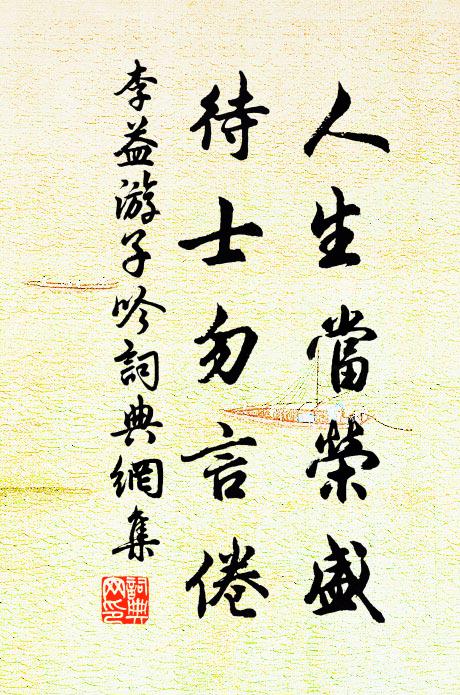 人生當榮盛
待士勿言倦
李益游子吟詞典網集
詞典網印